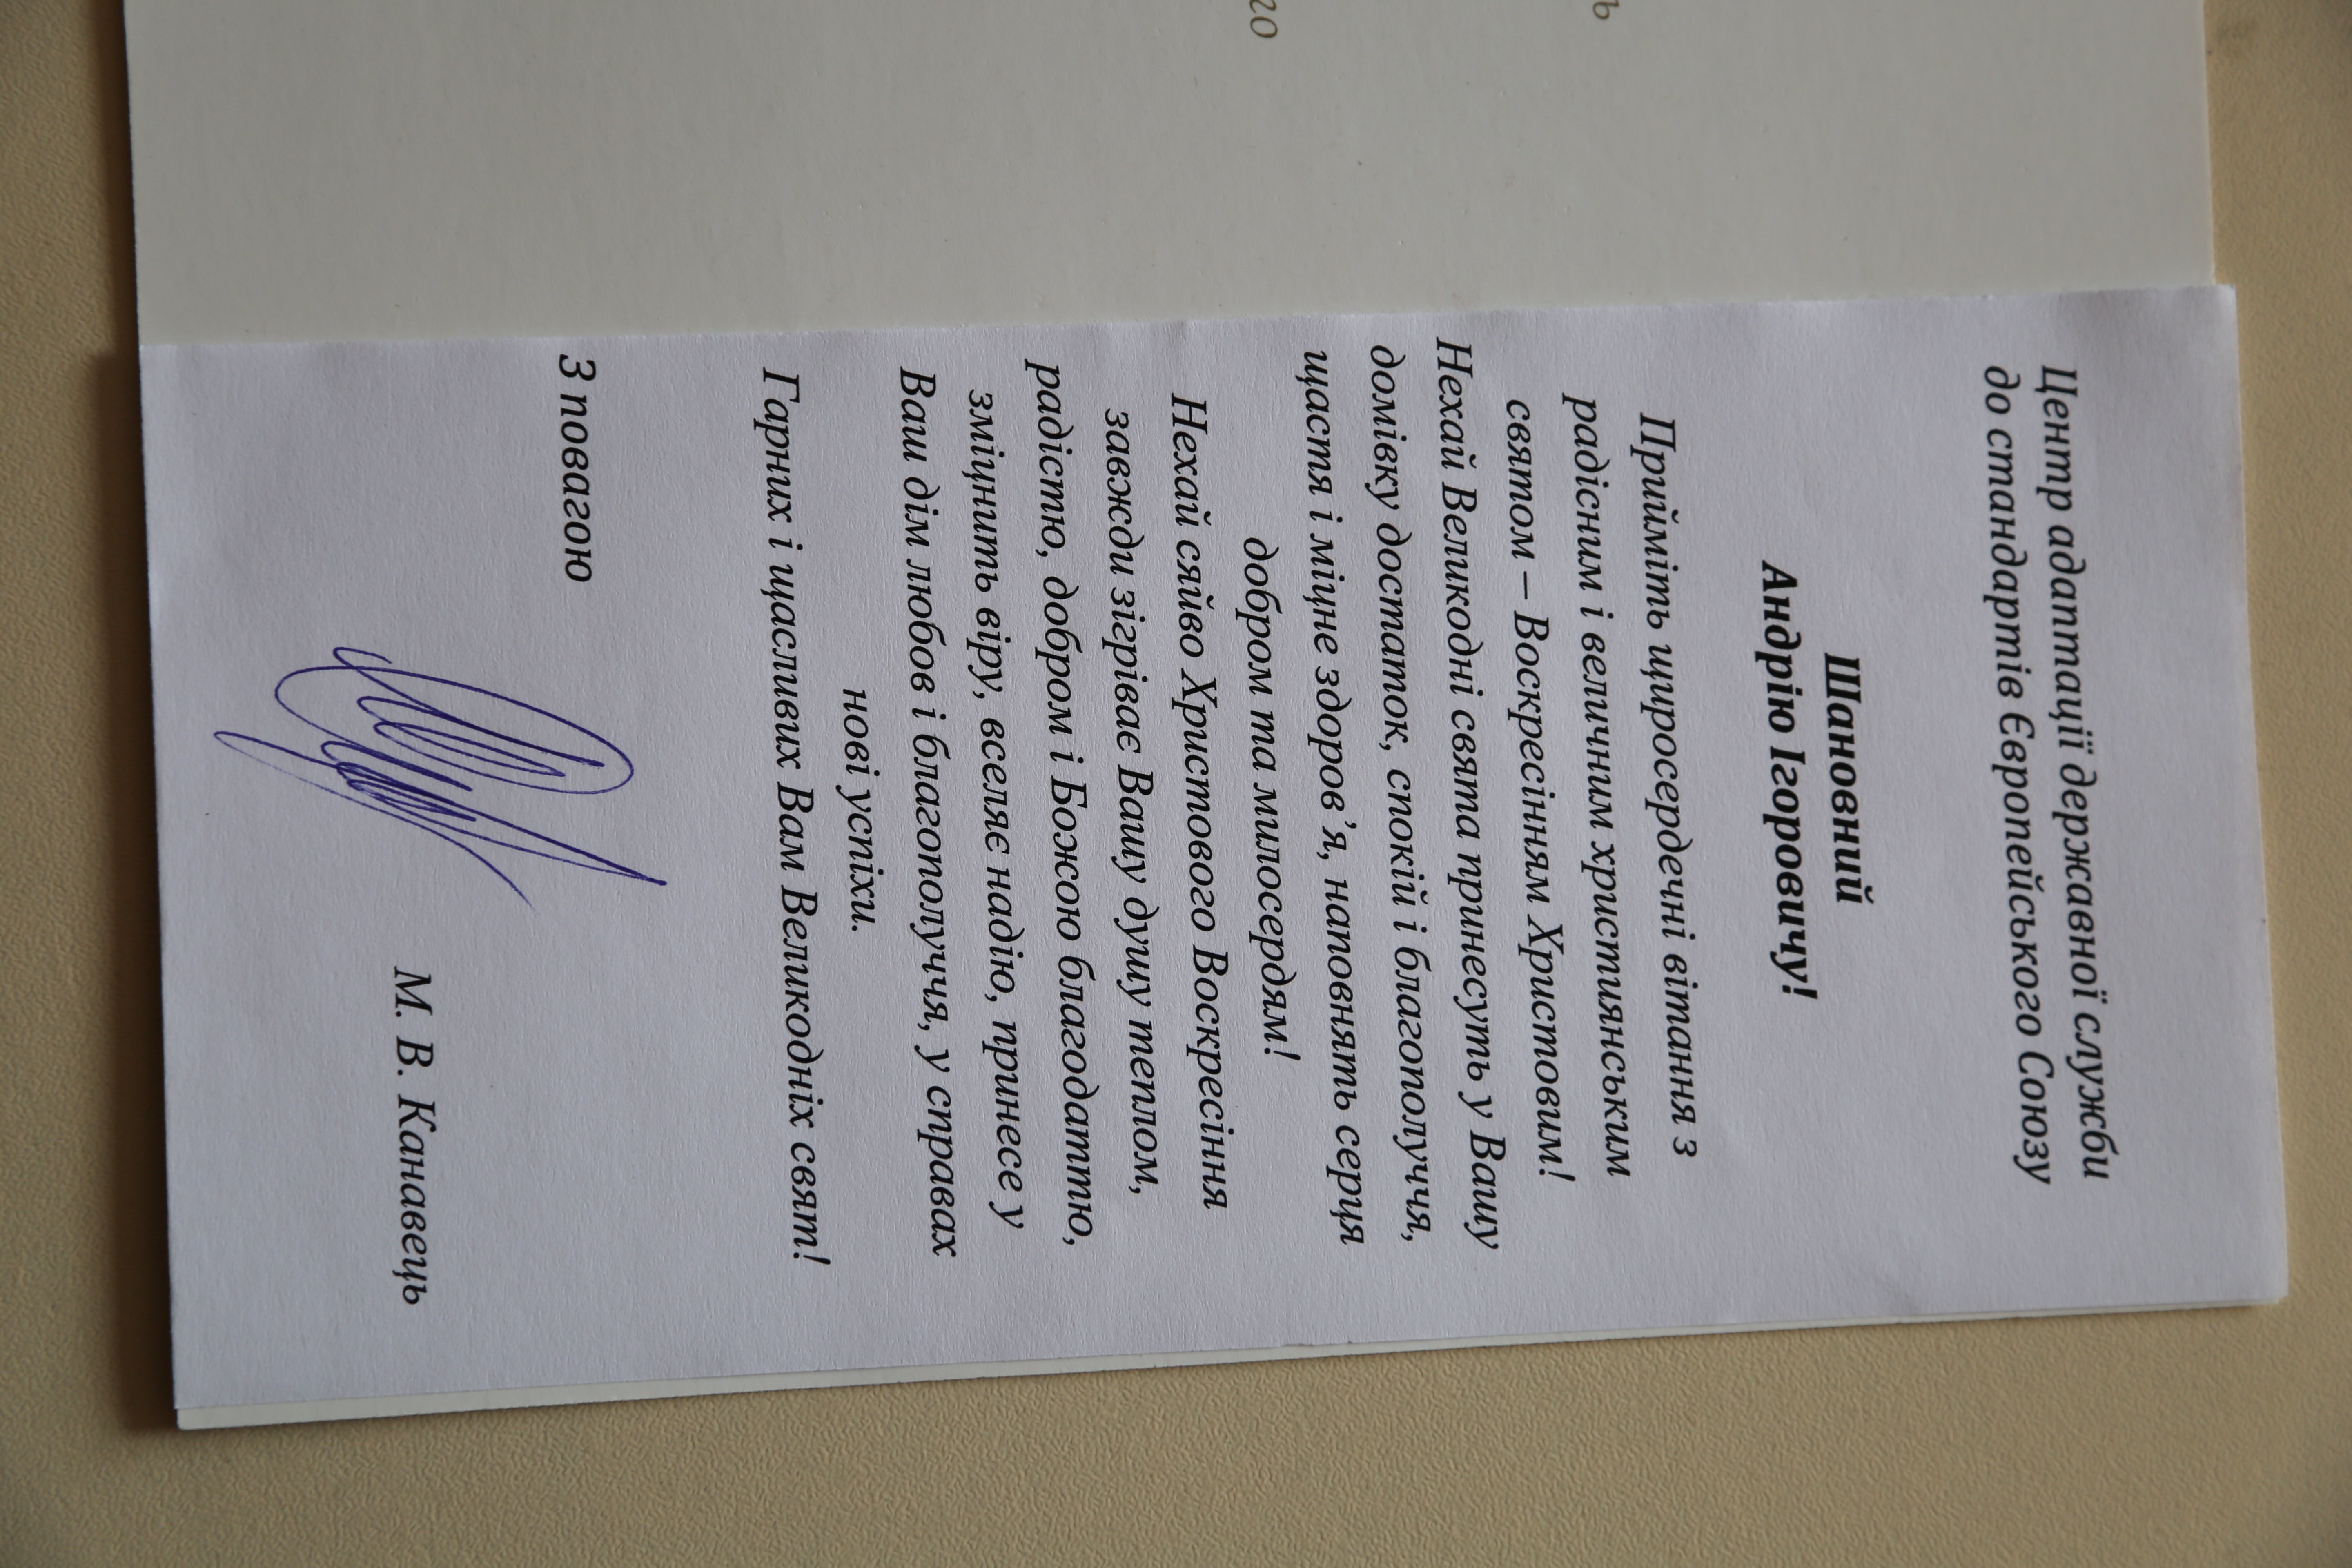 Центр адаптації державної служби
до стандартів Європейського Союзу
Шановний
Андрію Ігоровичу!
Прийміть щиросердечні вітання з
радісним і величним християнським
святом – Воскресінням Христовим!
Нехай Великодні свята принесуть у Вашу
домівку достаток, спокій і благополуччя,
щастя і міцне здоров’я, наповнять серця
добром та милосердям!
Нехай сяйво Христового Воскресіння
завжди зігріває Вашу душу теплом,
радістю, добром і Божою благодаттю,
зміцнить віру, вселяє надію, принесе у
Ваш дім любов і благополуччя, у справах
нові успіхи.
Гарних і щасливих Вам Великодніх свят!
З повагою
М. В. Канавець